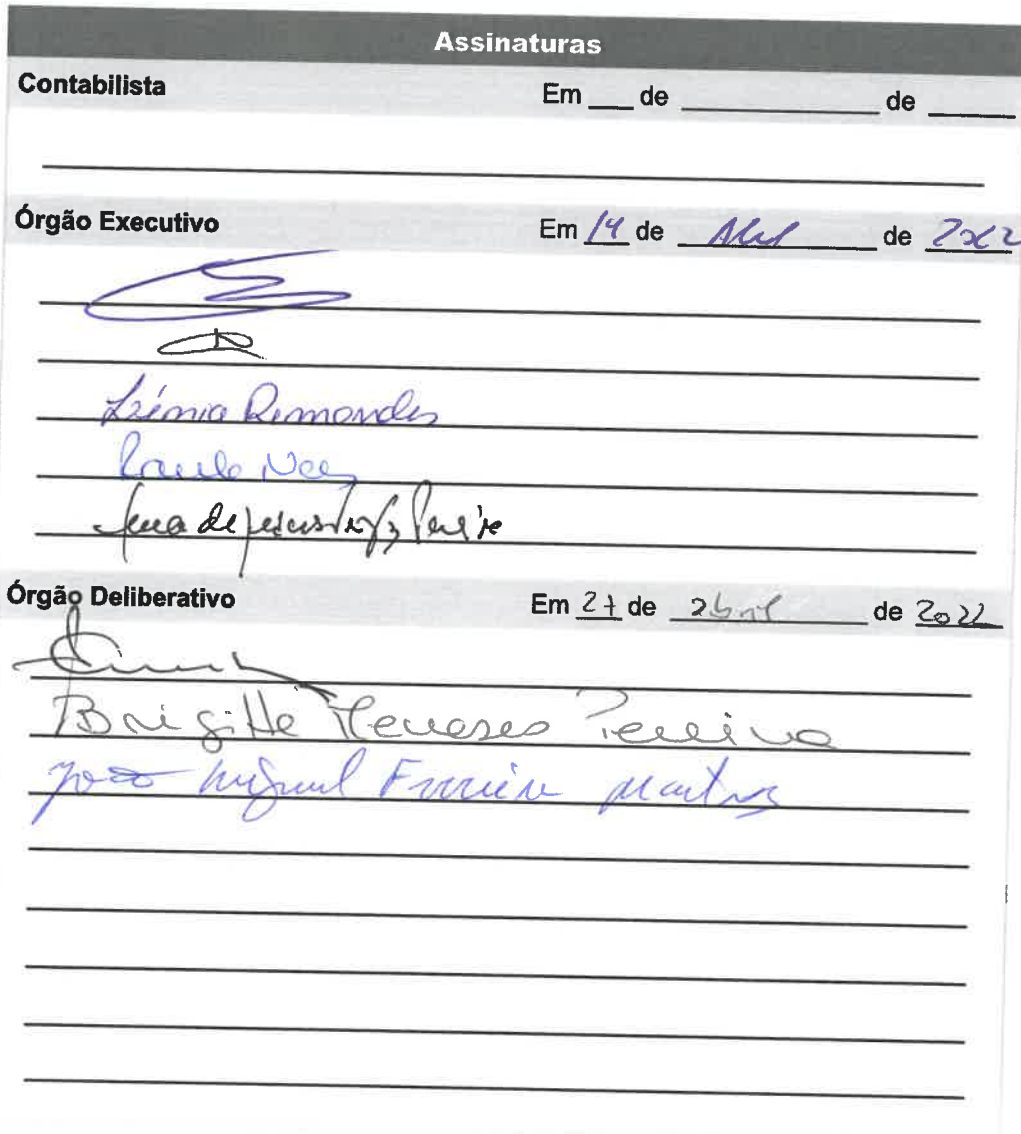 Assinaturas
Contabilista Em ___ de ___ de ___
Órgão Executivo Em 14 de Abril de 2022
Izémia Remondes
Paulo
Órgão Deliberativo Em 27 de abril de 2022
Brigitte Meneses Pereira
João Miguel Ferreira Martins